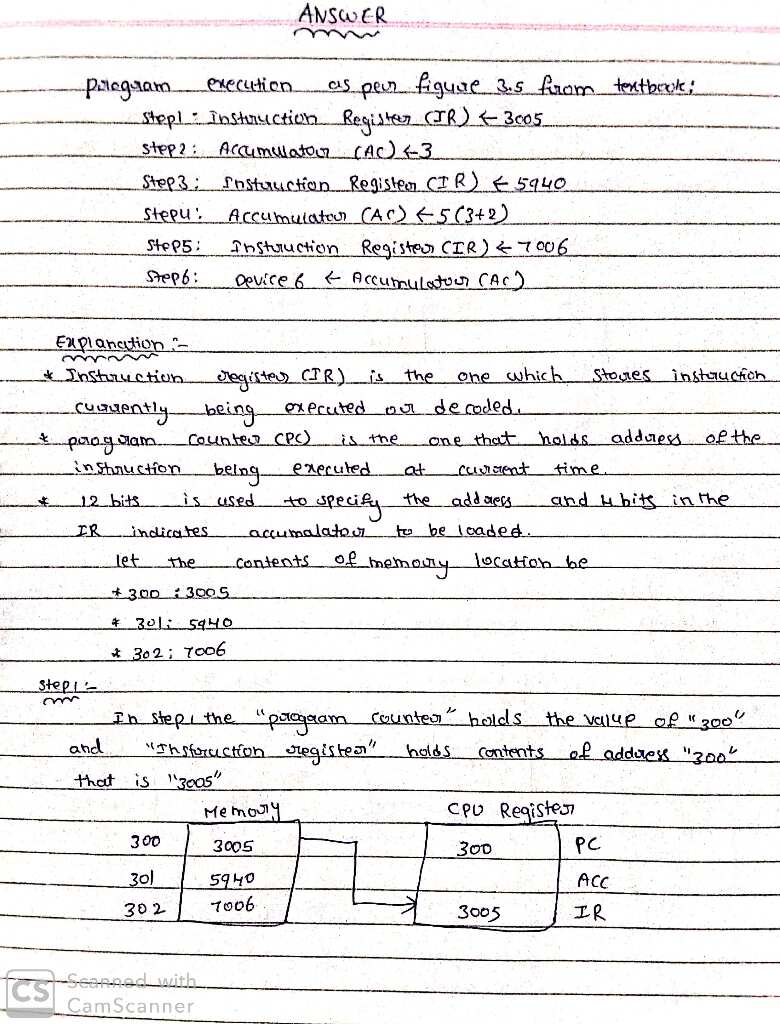 ANSWER
program execution as per figure 3.5 from textbook:
Step1: Instruction Register (IR) ← 3005
Step2: Accumulator (AC) ← 3
Step3: Instruction Register (IR) ← 5940
Step4: Accumulator (AC) ← 5 (3+2)
Step5: Instruction Register (IR) ← 7006
Step6: Device 6 ← Accumulator (AC)
Explanation :-
* Instruction register (IR) is the one which stores instruction
currently being executed or decoded.
* program counter (PC) is the one that holds address of the
instruction being executed at current time.
* 12 bits is used to specify the address and 4 bits in the
IR indicates accumalator to be loaded.
let the contents of memory location be
* 300 : 3005
* 301: 5940
* 302; 7006
Step1:-
In step1 the "program counter" holds the value of "300"
and "Instruction register" holds contents of address "300"
that is "3005"
Memory CPU Register
300 3005 300 PC
301 5940 ACC
302 7006 3005 IR
CS Scanned with
CamScanner